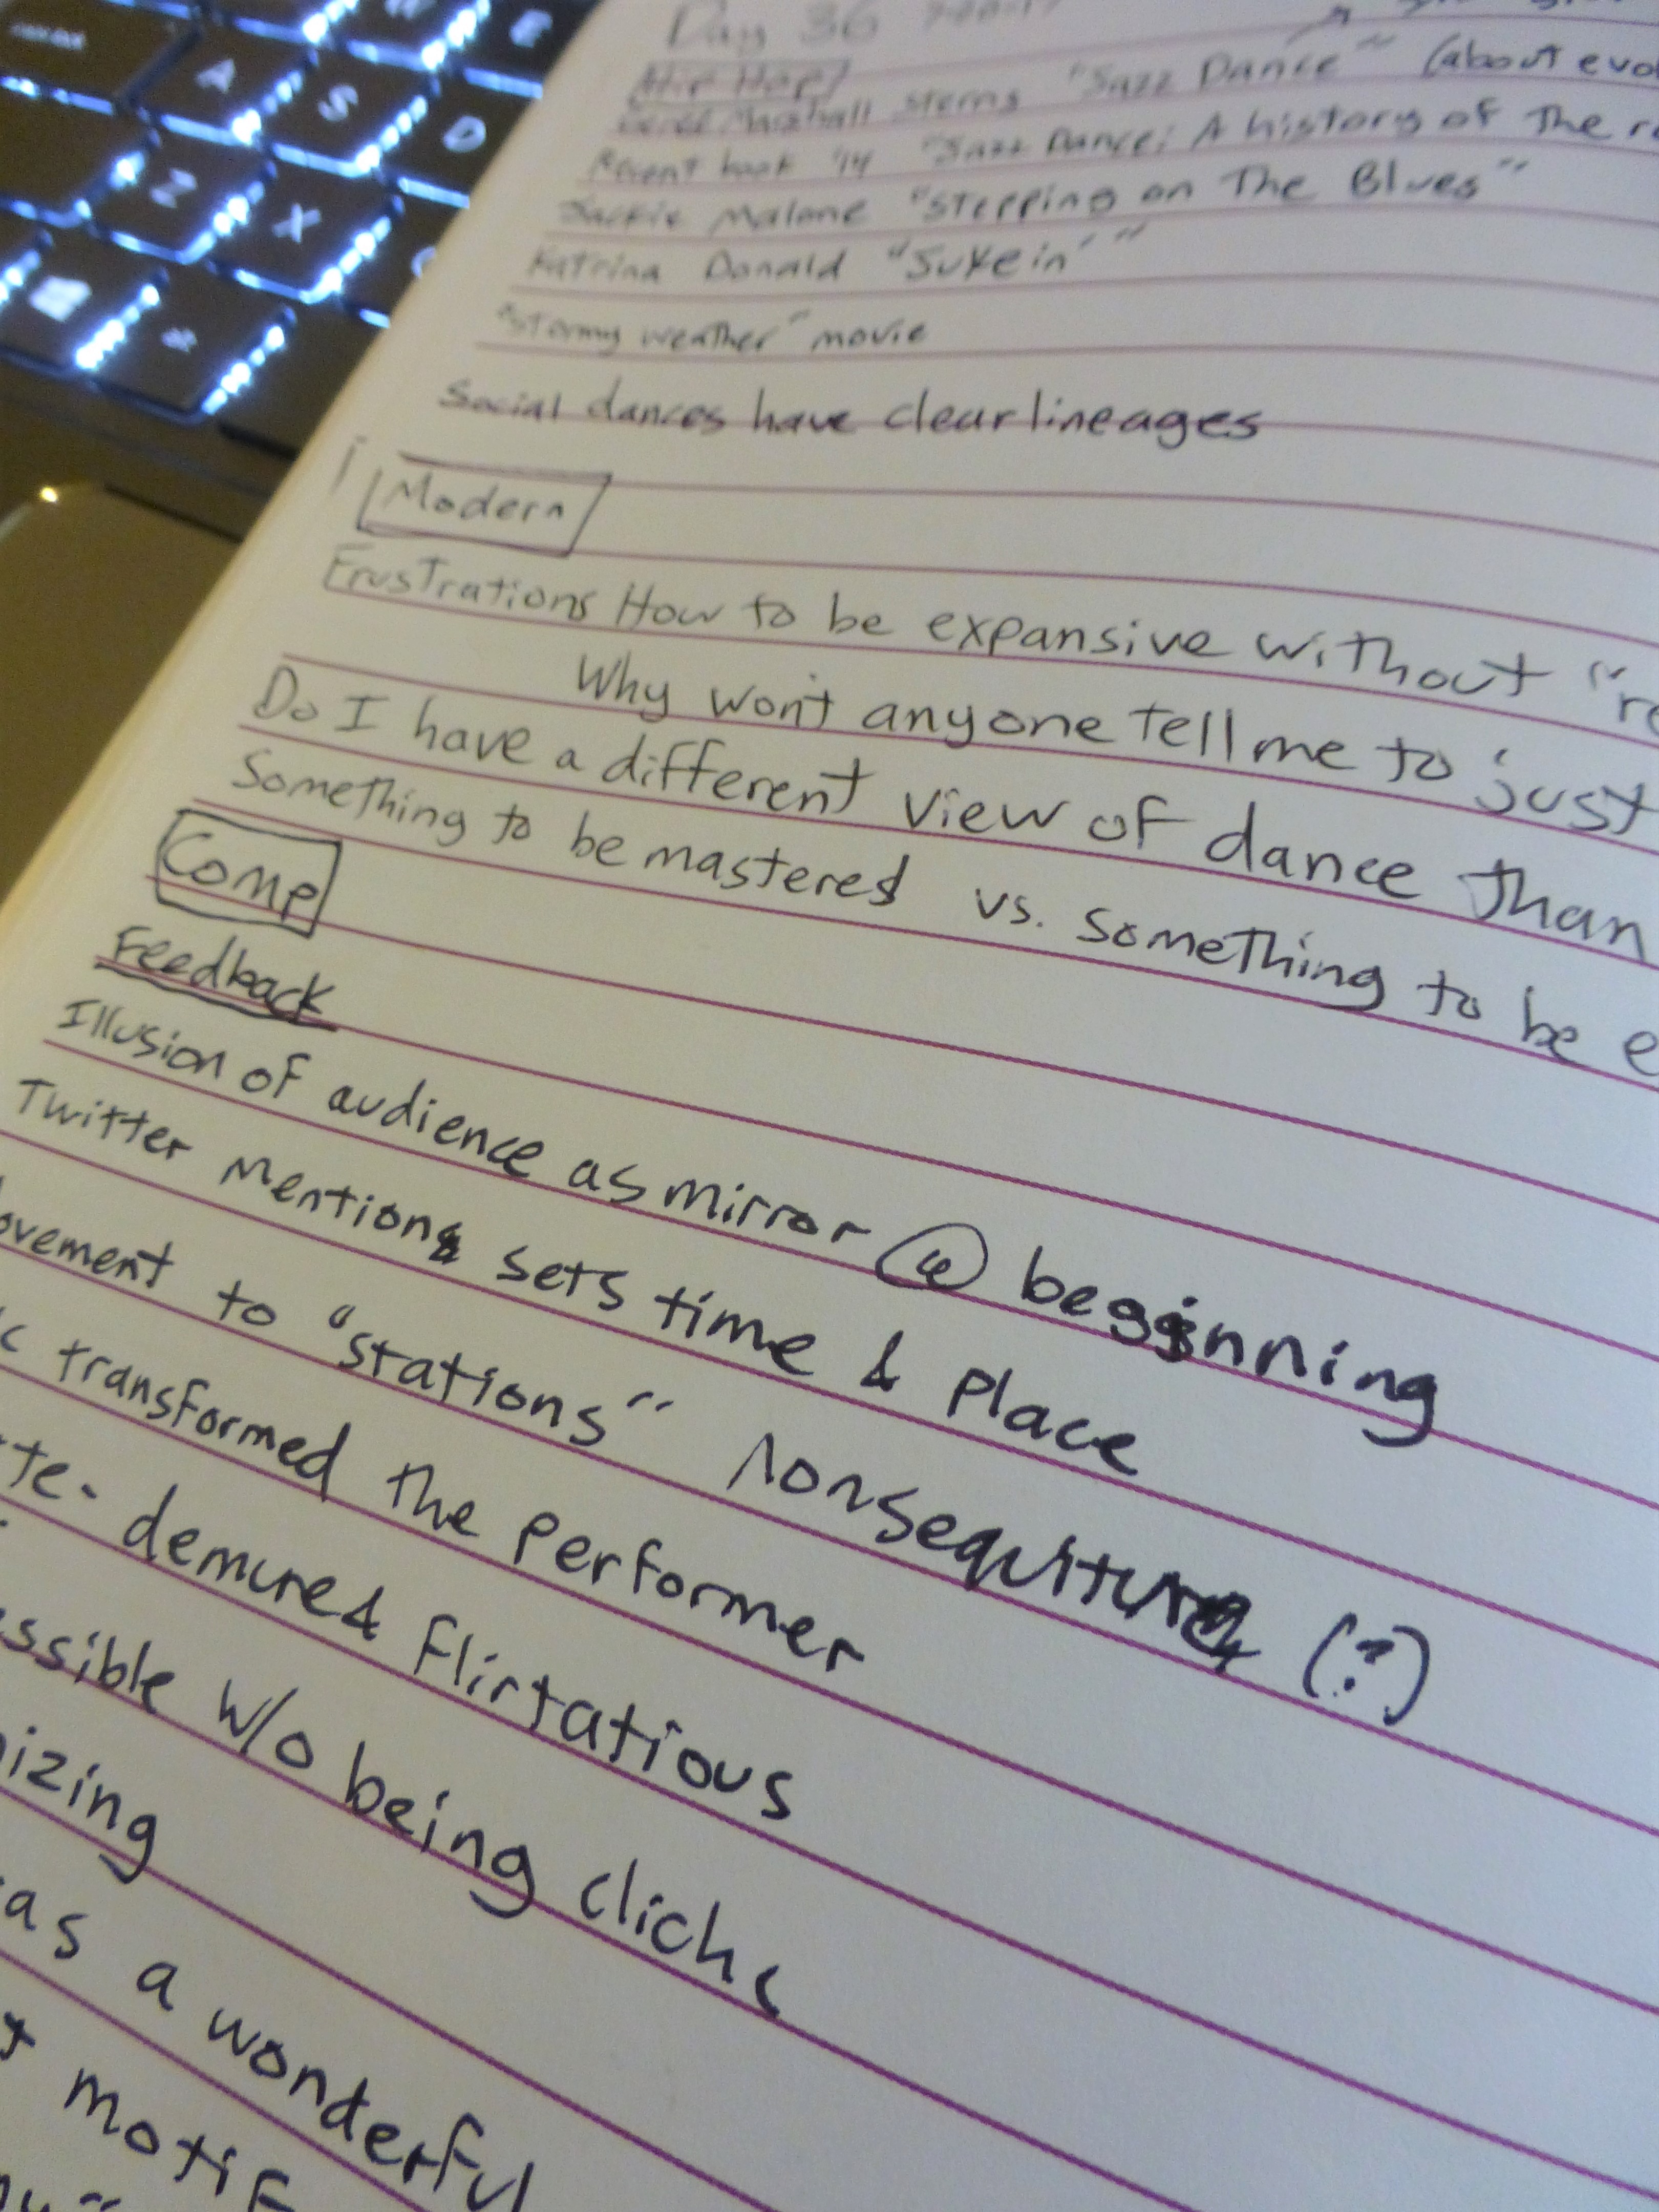 Day 36
Hip Hop
Marshall Sterns "Jazz Dance" (about evol
Recent book '14 "Jazz Dance: A history of The r
Jackie Malone "Stepping on The Blues"
Katrina Donald "Jukein'"
"Stormy weather" movie
Social dances have clear lineages
Modern
Frustrations How to be expansive without "re
Why won't anyone tell me to just
Do I have a different view of dance than
Something to be mastered vs. something to be e
Comp
Feedback
Illusion of audience as mirror @ beginning
Twitter mentions sets time & place
ovement to "stations" nonsequitur (?)
c transformed the performer
te - demured flirtatious
ssible w/o being cliche
nizing
as a wonderful
motif
A
S
D
Z
X